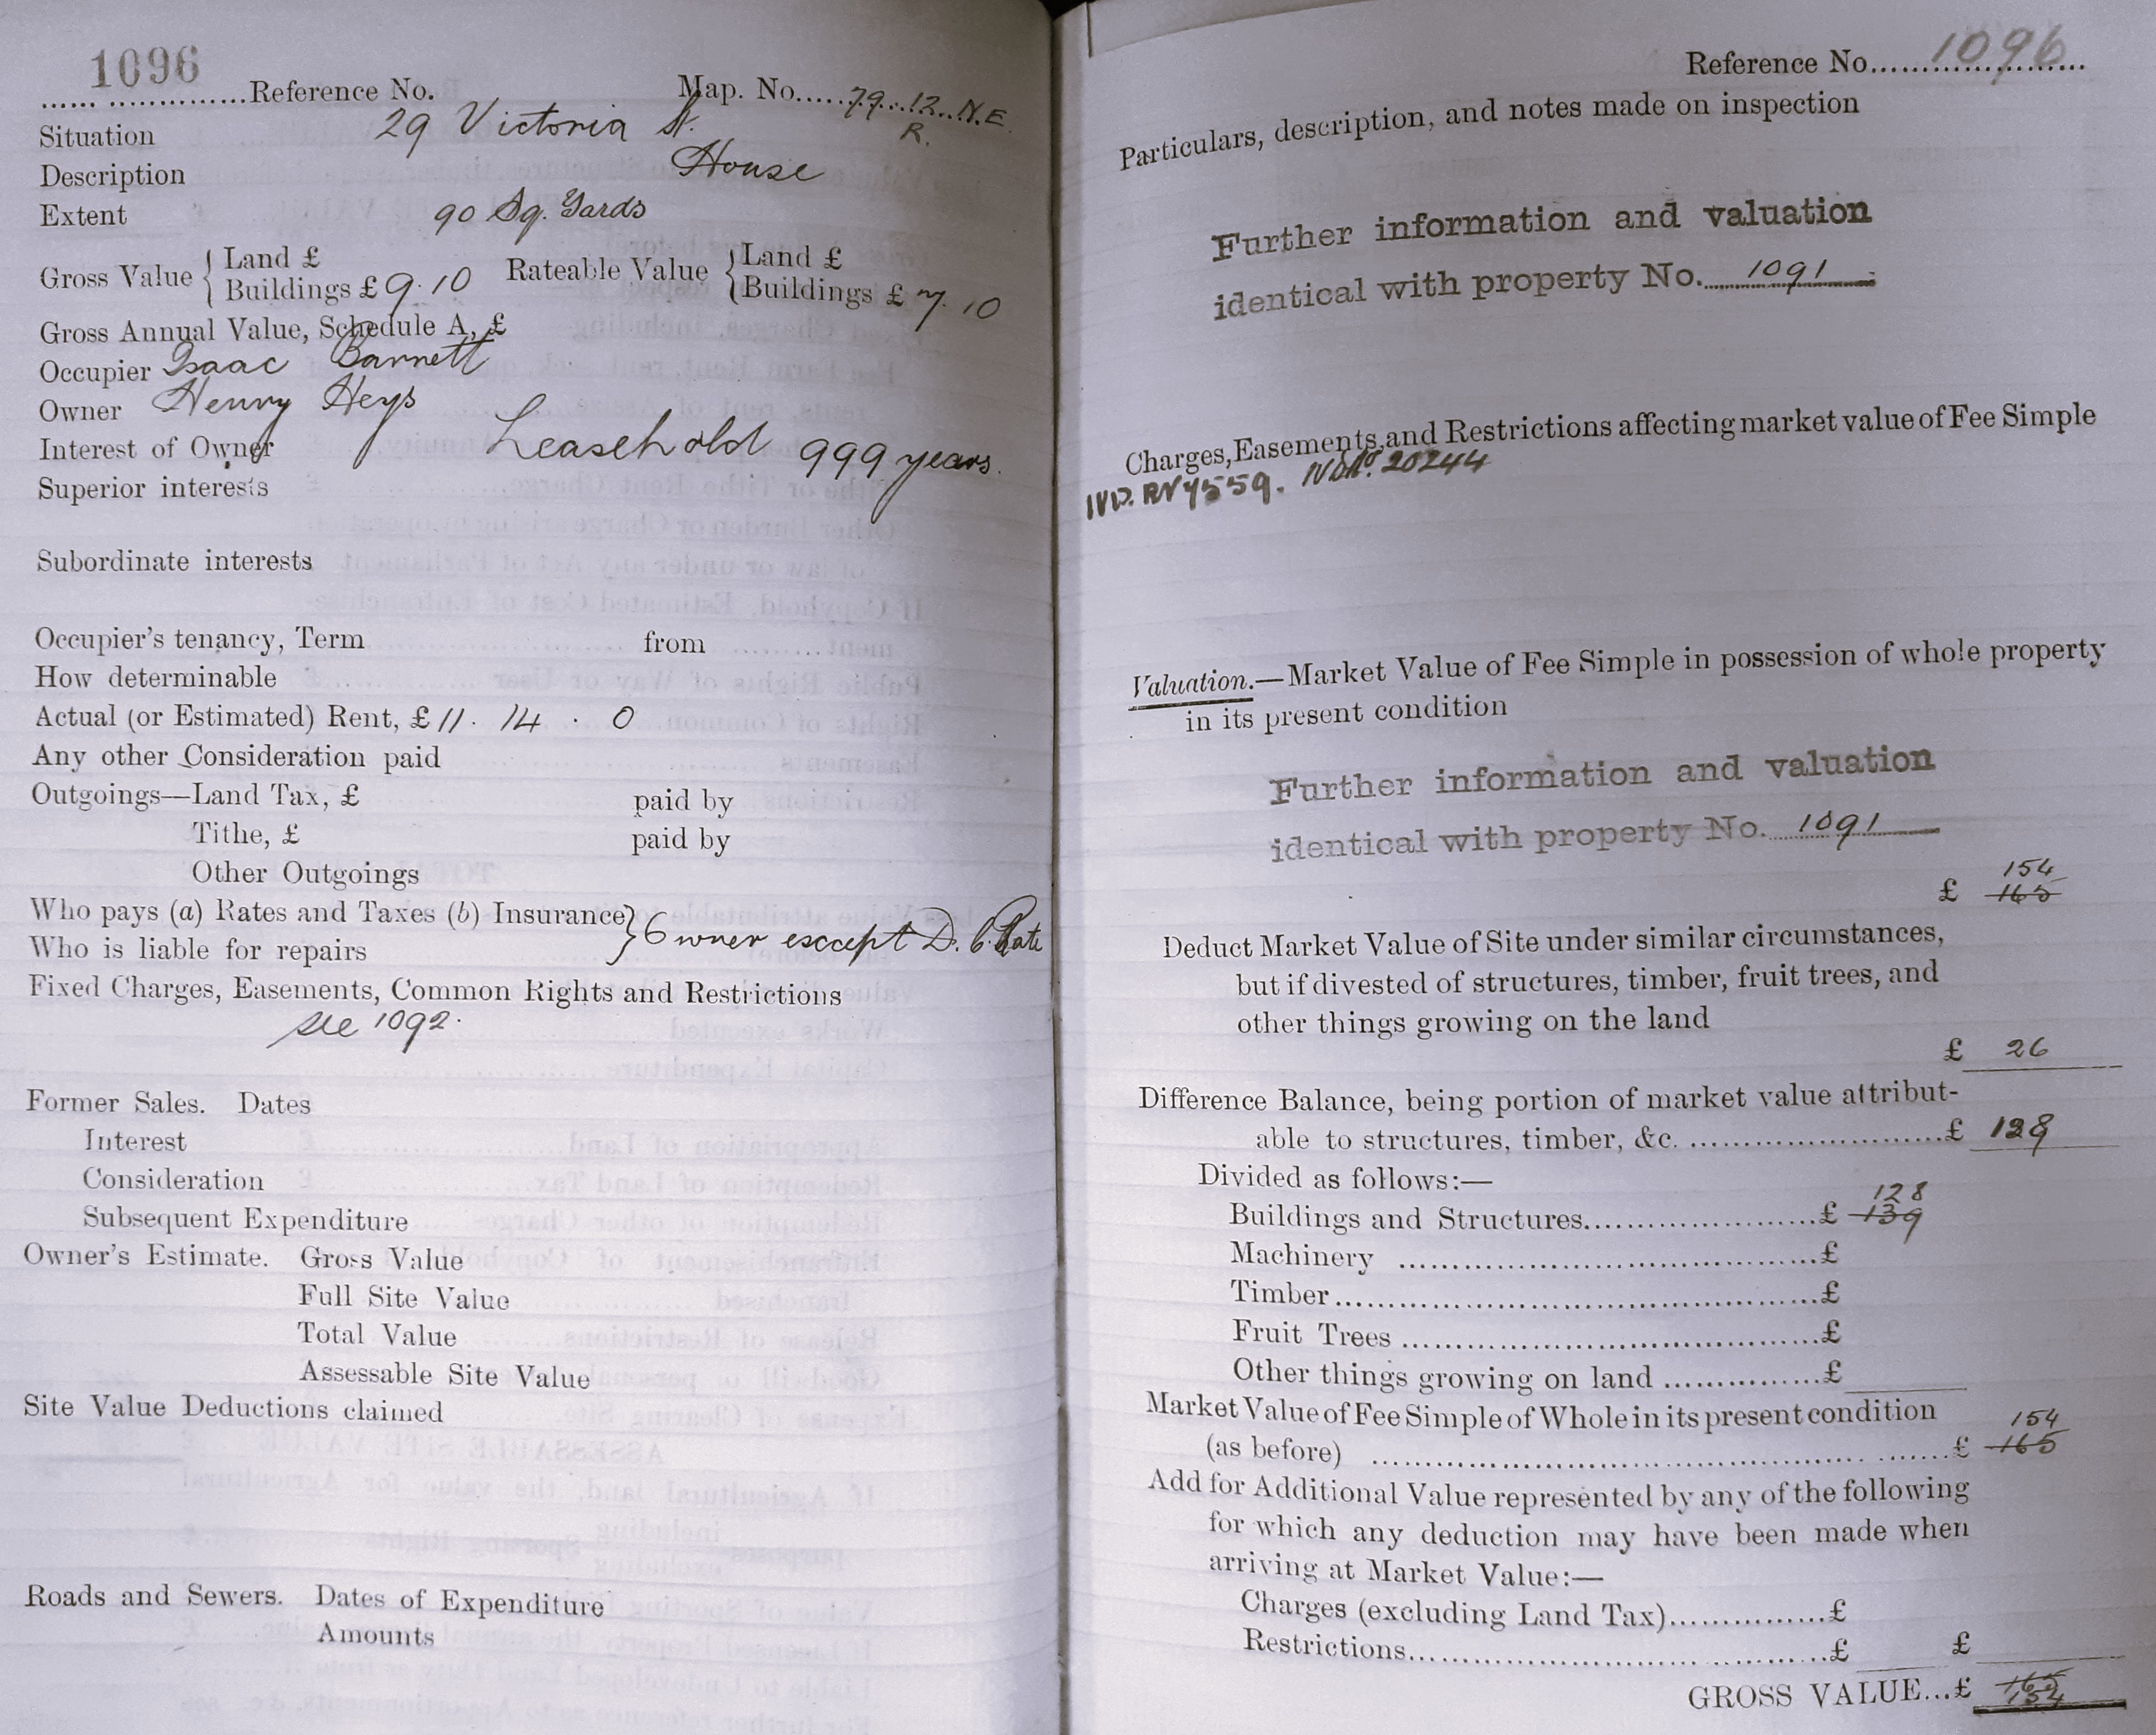 1096
...... ...............Reference No. Map. No..... 79..12..N.E.
R.
Situation 29 Victoria St.
Description House
Extent 90 Sq. Yards
Gross Value { Land £ Rateable Value { Land £
Buildings £ 9.10 Buildings £ 7.10
Gross Annual Value, Schedule A, £
Occupier Isaac Barnett
Owner Henry Heys
Interest of Owner Leasehold 999 years.
Superior interests
Subordinate interests
Occupier's tenancy, Term from
How determinable
Actual (or Estimated) Rent, £ 11. 14 . 0
Any other Consideration paid
Outgoings—Land Tax, £ paid by
Tithe, £ paid by
Other Outgoings
Who pays (a) Rates and Taxes (b) Insurance } Owner except D. C. Rate
Who is liable for repairs
Fixed Charges, Easements, Common Rights and Restrictions
see 1092.
Former Sales. Dates
Interest
Consideration
Subsequent Expenditure
Owner's Estimate. Gross Value
Full Site Value
Total Value
Assessable Site Value
Site Value Deductions claimed
Roads and Sewers. Dates of Expenditure
Amounts
Reference No...................... 1096
Particulars, description, and notes made on inspection
Further information and valuation
identical with property No. 1091
Charges, Easements, and Restrictions affecting market value of Fee Simple
20244
Valuation.—Market Value of Fee Simple in possession of whole property
in its present condition
Further information and valuation
identical with property No. 1091
154
£ 165
Deduct Market Value of Site under similar circumstances,
but if divested of structures, timber, fruit trees, and
other things growing on the land
£ 26
Difference Balance, being portion of market value attribut-
able to structures, timber, &c. ..........................£ 128
Divided as follows:—
128
Buildings and Structures.......................£ 139
Machinery .........................................£
Timber...............................................£
Fruit Trees .........................................£
Other things growing on land ...............£
Market Value of Fee Simple of Whole in its present condition
154
(as before) ..........................................................£ 165
Add for Additional Value represented by any of the following
for which any deduction may have been made when
arriving at Market Value:—
Charges (excluding Land Tax)...............£
Restrictions.........................................£ £
GROSS VALUE...£ 165
154